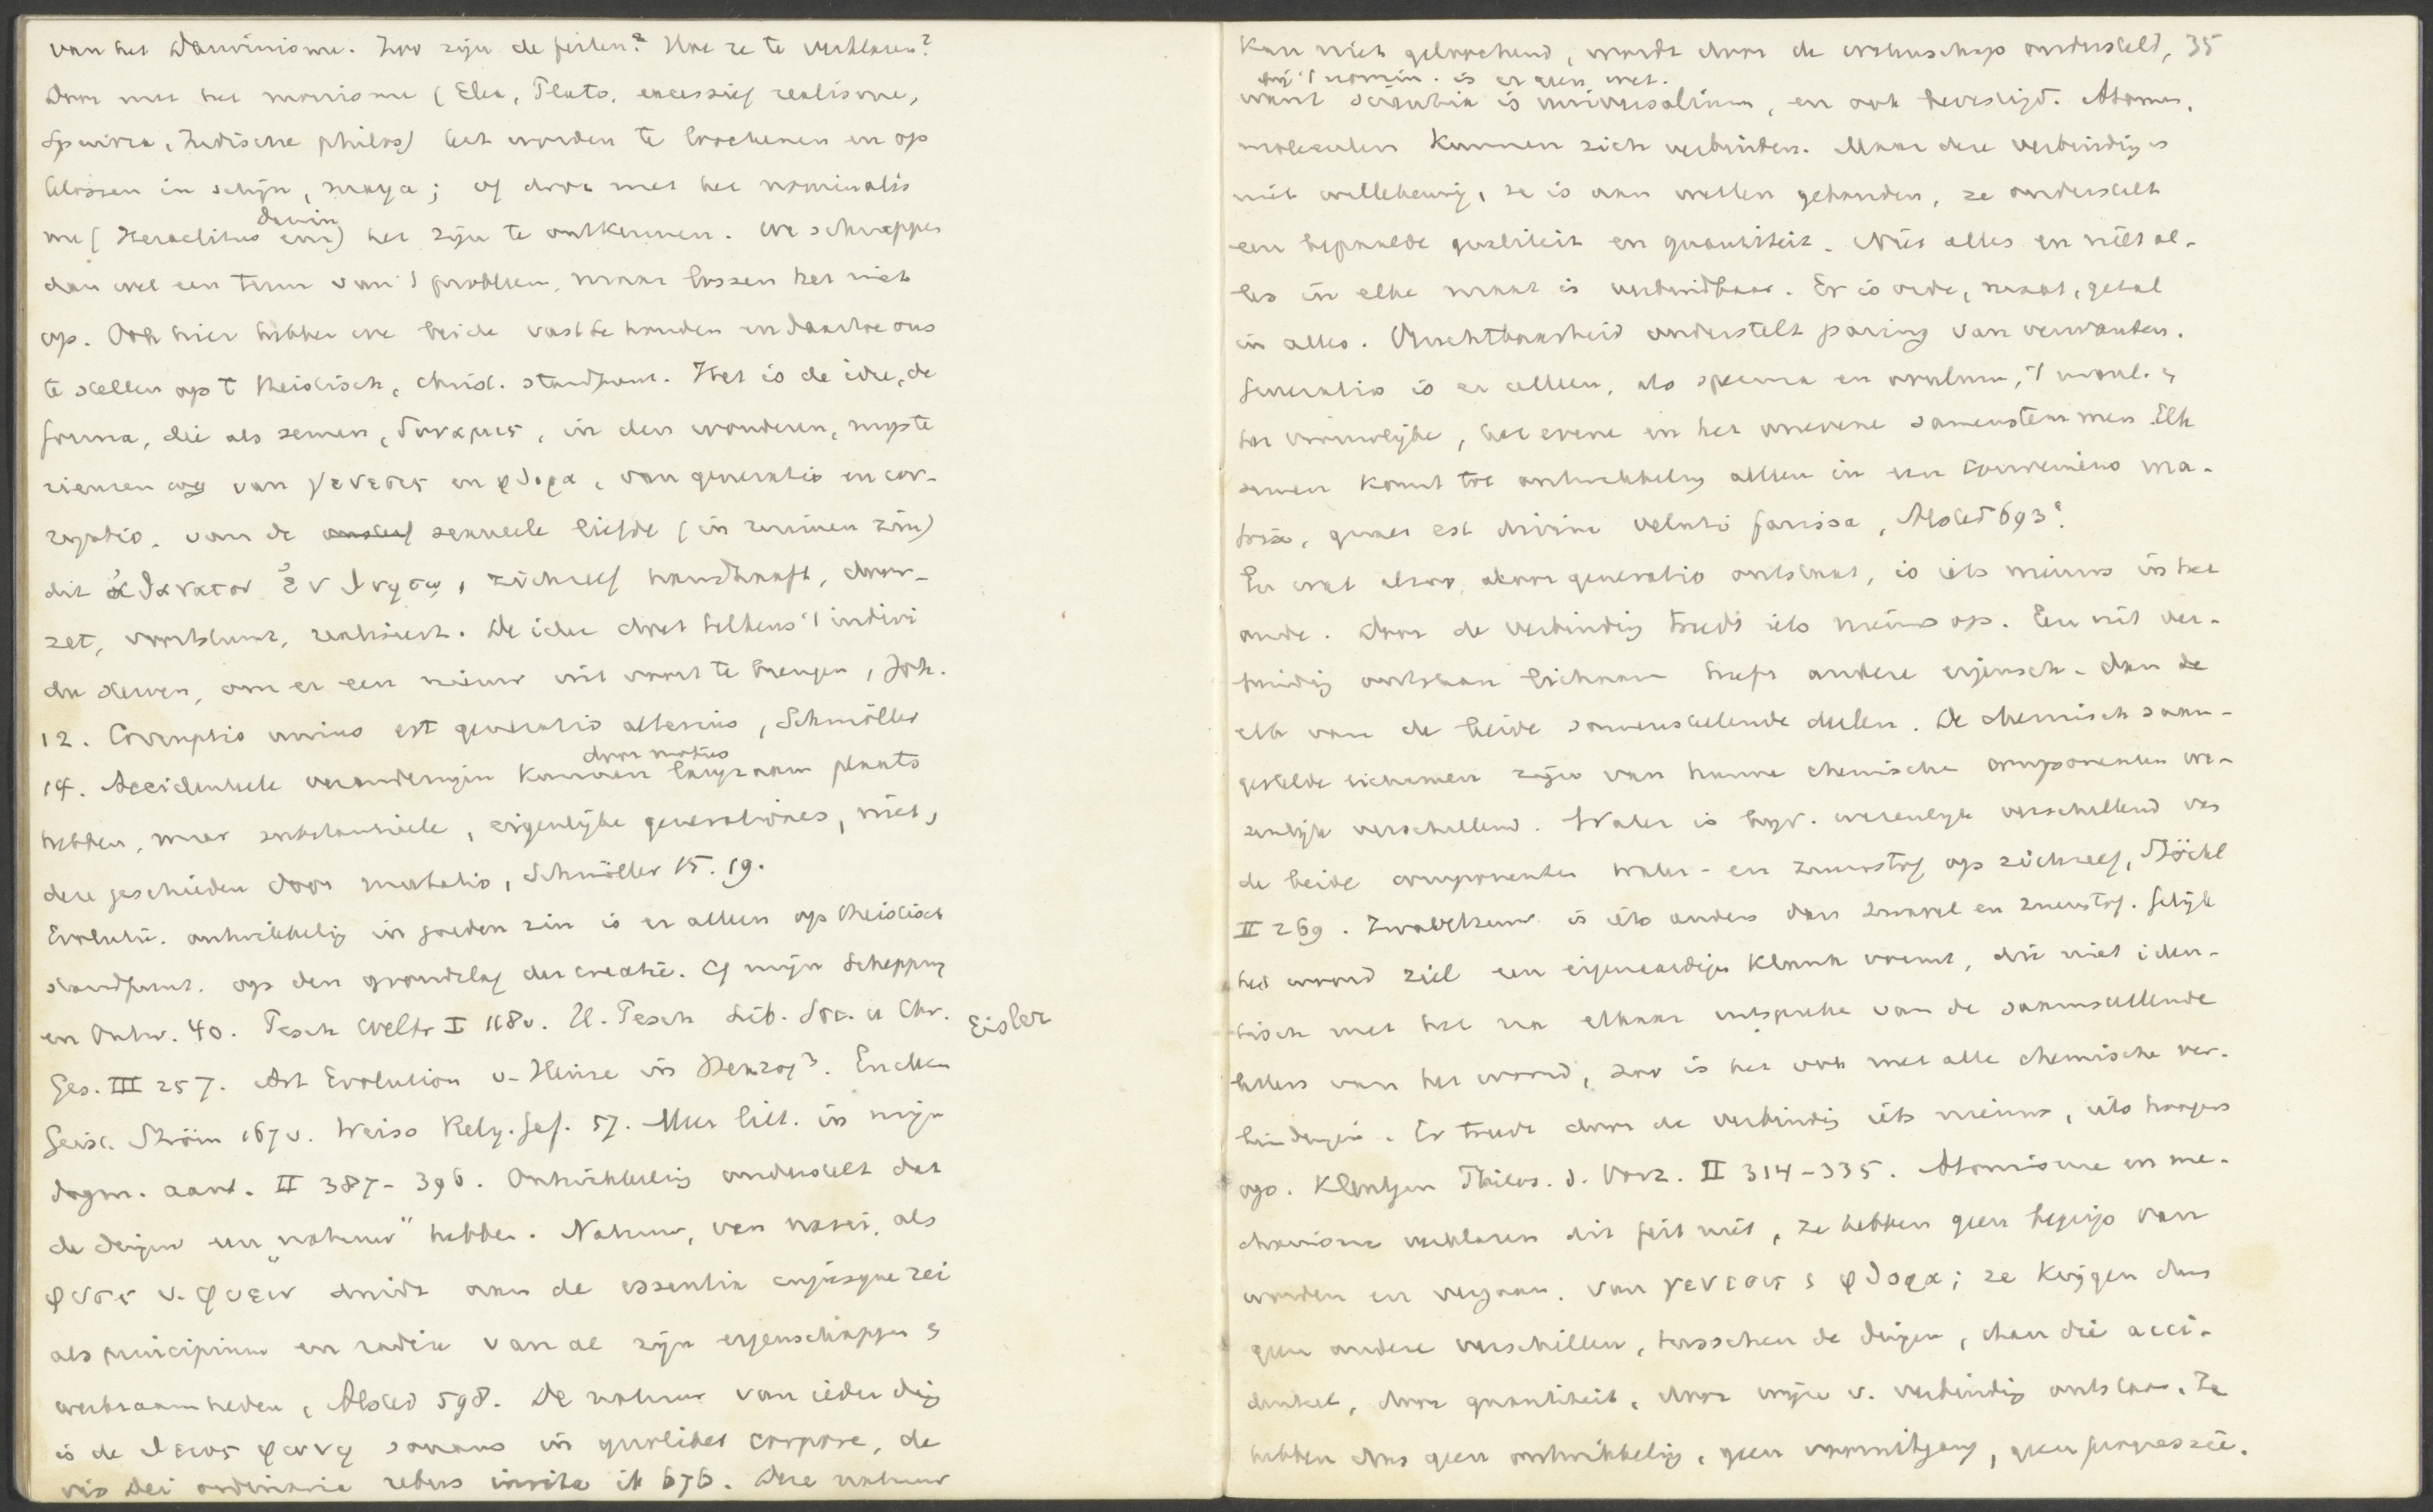 van het Darwinisme. Zoo zijn de feiten? Hoe ze te verklaren?
Door met het monisme (Elea, Plato, excessief realisme,
Spinoza, Indische philos) het worden te loochenen en op
te lossen in schijn, maya; of door met het nominalis
me (Heraclitus Darwin enz) het zijn te ontkennen. We schrappen
dan wel een term van 't probleem, maar lossen het niet
op. Ook hier hebben we beide vast te houden en daartoe ons
te stellen op 't theistisch, christ. standpunt. Het is de idee, de
forma, die als semen, δυναμις, in den wonderen, myste
rieusen weg van γενεσις en φθορα, van generatio en cor-
ruptio, van de sexueele liefde (in ruimen zin)
dit ἀθανατον ἐν θνητῳ, zichzelf handhaaft, door-
zet, voortplant, realiseert. De idee doet telkens 't indivi
du sterven, om er een nieuw uit voort te brengen, Joh.
12. Corruptio unius est generatio alterius, Schmöller
14. Accidenteele veranderingen kunnen door motus langzaam plaats
hebben, maar substantieele, eigenlijke generationes, niet,
deze geschieden door mutatio, Schmöller 15. 19.
Evolutie. ontwikkeling in goeden zin is er alleen op theistisch
standpunt. op den grondslag der creatie. Cf mijn Schepping
en Ontw. 40. Pesch Weltr I 118v. H. Pesch Lib. Soc. u Chr. Eisler
Ges. III 257. Art Evolution v. Heinze in Herzog³. Eucken
Geist. Ström 167v. Weiss Relig. Gef. 57. Meer litt. in mijn
dogm. aant. II 387-396. Ontwikkeling onderstelt dat
de dingen een "natuur" hebben. Natuur, van nasci, als
φυσις v. φυειν duidt aan de essentia cujusque rei
als principium en radix van al zijn eigenschappen &
werkzaamheden, Alsted 598. De natuur van ieder ding
is de θειος φωνη sonans in quolibet corpore, de
vis Dei ordinaria rebus insita ib 676. Deze natuur
kan niet geloochend, wordt door de wetenschap ondersteld, 35
bij 't nomin. is er geen wet.
want scientia is universalium, en ook bevestigd. Atomen,
moleculen kunnen zich verbinden. Maar deze verbinding is
niet willekeurig, ze is aan wetten gebonden, ze onderstelt
een bepaalde qualiteit en quantiteit. Niet alles en niet al-
les in elke maat is verbindbaar. Er is orde, maat, getal
in alles. Vruchtbaarheid onderstelt paring van verwanten.
Generatio is er alleen, als sperma en ovulum, 't mannl. &
het vrouwelijke, het evene en het onevene samenstemmen. Elk
semen komt tot ontwikkeling alleen in een conveniens ma-
trix, quae est divini veluti , Alsted 693ᵃ.
En wat alzoo, door generatio ontstaat, is iets nieuws in het
oude. Door de verbinding treedt iets nieuws op. Een uit ver-
binding ontstaan lichaam heeft andere eigensch. dan de
elk van de beide samenstellende deelen. De chemisch saam-
gestelde lichamen zijn van hunne chemische componenten we-
zenlijk verschillend. Water is bijv. wezenlijk verschillend van
de beide componenten water- en zuurstof op zichzelf, Stöckl
II 269. Zwavelzuur is iets anders dan zwavel en zuurstof. Gelijk
het woord ziel een eigenaardige klank vormt, die niet iden-
tisch met het na elkaar uitspreken van de saamstellende
letters van het woord, zoo is het ook met alle chemische ver-
bindingen. Er treedt door de verbinding iets nieuws, iets hoogers
op. Kleutgen Philos. d. Vorz. II 314-335. Atomisme en me-
chanisme verklaren dit feit niet, ze hebben geen begrip van
worden en vergaan. van γενεσις & φθορα; ze krijgen dus
geen andere verschillen, tusschen de dingen, dan die acci-
denteel, door quantiteit, door wijze v. verbinding ontstaan. Ze
hebben dus geen ontwikkeling, geen vooruitgang, geen progressie.